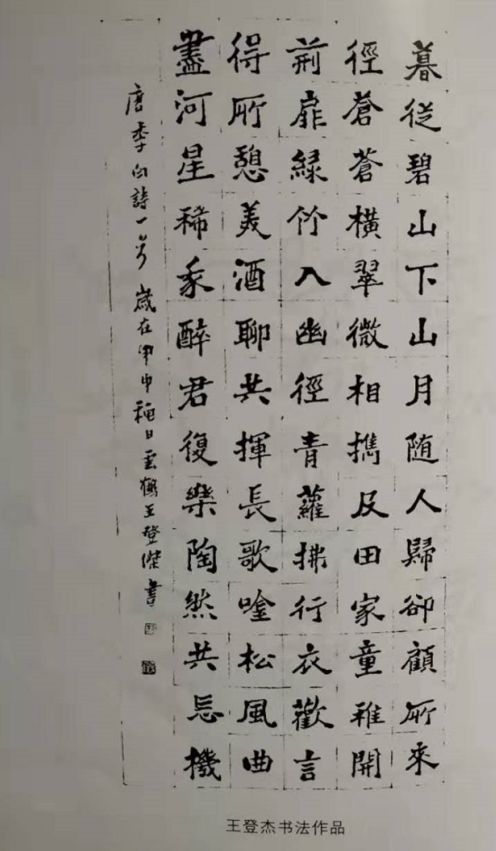 暮從碧山下山月随人歸卻顧所來
徑蒼蒼橫翠微相攜及田家童稚開
荊扉綠竹入幽徑青蘿拂行衣歡言
得所憩美酒聊共揮長歌唫松風曲
盡河星稀我醉君復樂陶然共忘機
唐李白詩一首 歲在甲申秋日雲鶴王登傑書
王登杰书法作品